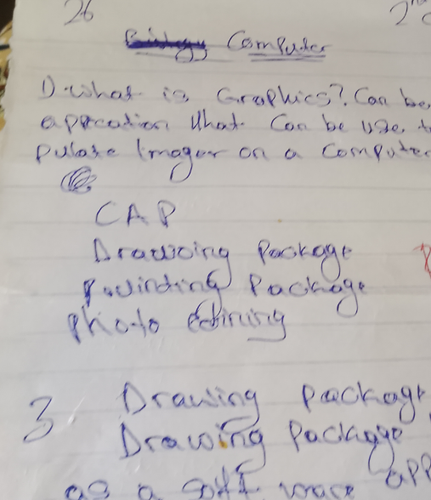 26 2nd
Biology Computer
1) what is Graphics? Can be
appication that can be use t
pulate Images on a Computer
CAP
Drawoing Package
Pointing Package
Photo editining
3 Drawing Packag
Drawing Package
as a soft ware app